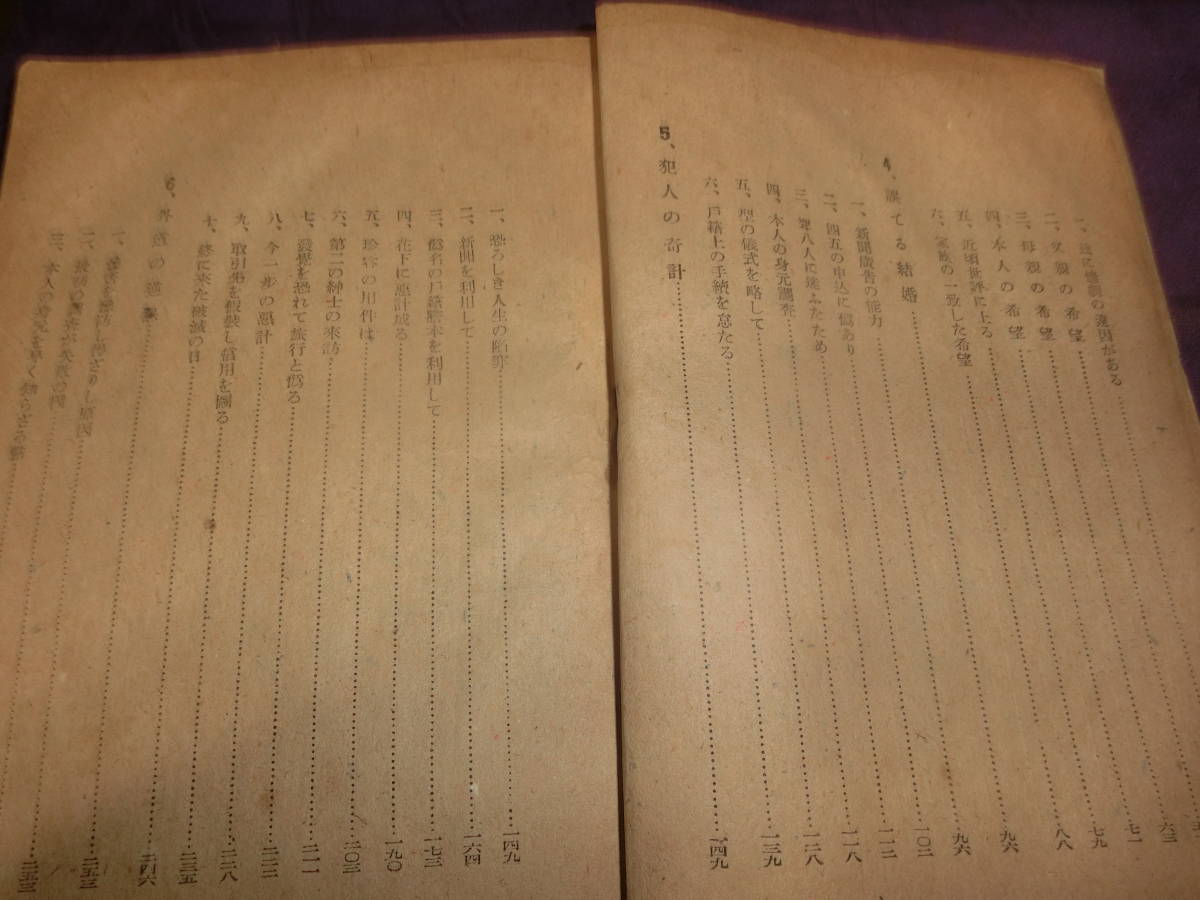 の違因がある……七一
二、父親の希望……七九
三、母親の希望……八八
四、本人の希望……九六
五、近頃世評に上る……九六
六、家族の一致した希望……一〇二
4、誤てる結婚……一一二
一、新聞広告の能力……一一二
二、四五の申込に偽あり……一一八
三、第八人に逢ふたため……一二八
四、本人の身元調査……一三九
五、型の儀式を略して
六、戸籍上の手続を怠たる……一四九
5、犯人の奇計
一、恐ろしき人生の陥穽……一四九
二、新聞を利用して……一六四
三、偽名の戸籍謄本を利用して……一七三
四、花下に悪計成る……一九〇
五、珍客の用件は……二〇三
六、第二の紳士の来訪……二一一
七、發覺を恐れて旅行と偽る……二二二
八、今一歩の惡計……二二八
九、取引先を假裝し信用を圖る……二三五
十、終に来た破滅の日……二四六
6、外道の
一、原因……二五三
二、最初の調査が失敗の因
三、本人の身元を早く知らざる